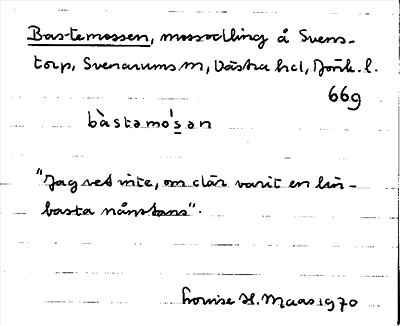 Bastemossen, mossodling å Svens-
torp, Svenarums sn, Västra hd, Jönk. l.
669
bàstamo'san
"Jag vet inte, om där varit en lin-
basta nånstans".
Louise H. Maas 1970